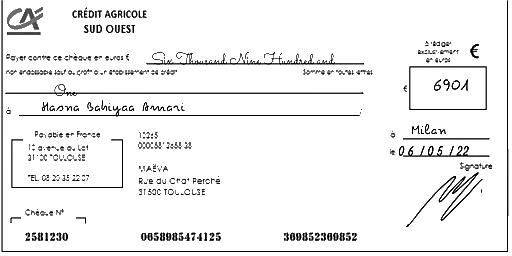 CA
CRÉDIT AGRICOLE
SUD OUEST
Payer contre ce chèque en euros € Six Thousand Nine Hundred and
non endossable sauf au profit d'un établissement de crédit Somme en toutes lettres
One
à Hasna Bahiyaa Amari
à rédiger
exclusivement
en euros
€
€ 6901
Payable en France
10 avenue du Lot
31100 TOULOUSE
TEL. 08 20 35 22 07
10265
MAÉVA
Rue du Chat Perché
31500 TOULOUSE
à Milan
le 06/05/22
Signature
Chèque N°
2581230 0658985474125 369852369852